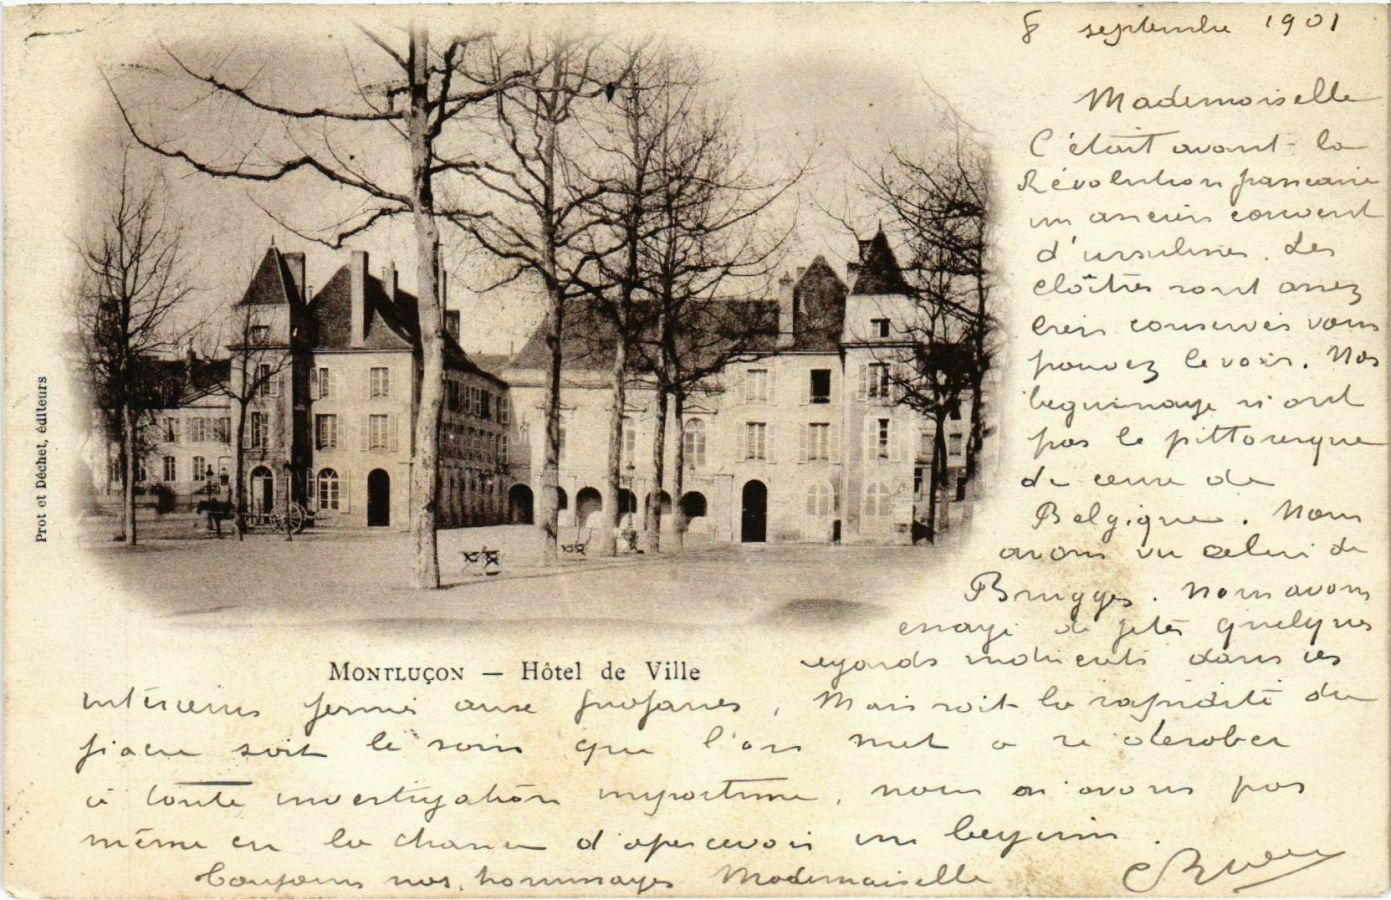 8 septembre 1901
Mademoiselle
C'était avant la
Révolution française
un ancien couvent
d'ursulines. Les
cloîtres sont assez
bien conservés vous
pouvez le voir. Nos
beguinages n'ont
pas le pittoresque
de ceux de
Belgique. Nous
avons vu celui de
Brugges. Nous avons
essayé de jeter quelques
regards indiscrets dans ces
intérieurs fermés aux profanes, Mais soit la rapidité du
fiacre soit le soin que l'on met a se dérober
à toute investigation importune, nous n'avons pas
même eu la chance d'apercevoir un beguin.
Toujours nos hommages Mademoiselle
MONTLUÇON — Hôtel de Ville
Prot et Déchet, éditeurs